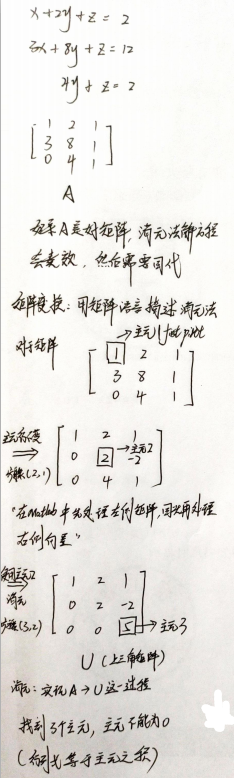 x+2y+z = 2
3x+8y+z = 12
4y+z = 2
1 2 1
3 8 1
0 4 1
A
矩阵A是好矩阵, 消元法解方程
会奏效, 然后需要回代
矩阵变换: 用矩阵语言描述消元法
→主元1 first pivot
对于矩阵
1 2 1
3 8 1
0 4 1
1 2 1
0 2 -2 →主元2
0 4 1
步骤(2,1)
"在Matlab中先处理左侧矩阵, 回头再处理
右侧向量"
1 2 1
0 2 -2
0 0 5 →主元3
消元
步骤(3,2)
U (上三角矩阵)
消元: 实现A→U这一过程
找到3个主元, 主元不能为0
(行列式等于主元之积)